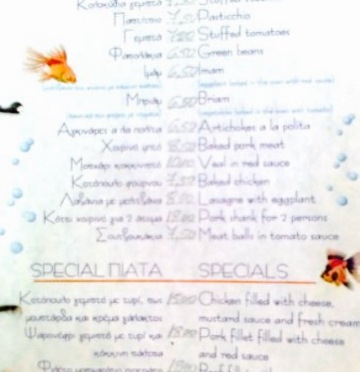 Κολοκύθια γεμιστά Stuffed
Παστίτσιο 7,50 Pasticchio
Γεμιστά 7,00 Stuffed tomatoes
Φασολάκια 6,50 Green beans
Ιμάμ 6,50 Imam
Μπριάμ 6,50 Briam
Αγκινάρες α λα πολίτα 6,50 Artichokes a la polita
Χοιρινό ψητό 8,50 Baked pork meat
Μοσχάρι κοκκινιστό 10,00 Veal in red sauce
Κοτόπουλο φούρνου 7,50 Baked chicken
Λαζάνια με μελιτζάνα 8,00 Lasagne with eggplant
Κότσι χοιρινό για 2 άτομα 19,00 Pork shank for 2 persons
Σουτζουκάκια 7,50 Meat balls in tomato sauce
SPECIAL ΠΙΑΤΑ SPECIALS
Κοτόπουλο γεμιστό με τυρί, σως 15,00 Chicken filled with cheese,
μουστάρδα και κρέμα γάλακτος mustard sauce and fresh cream
Ψαρονέφρι γεμιστό με τυρί και 15,00 Pork fillet filled with cheese
κόκκινη σάλτσα and red sauce